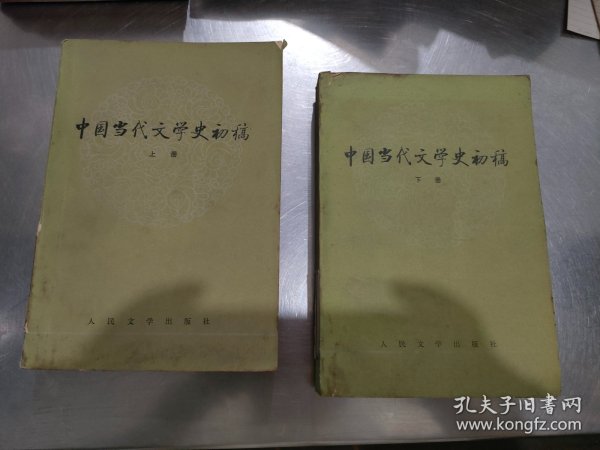 中国当代文学史初稿
上册
人民文学出版社
中国当代文学史初稿
下册
人民文学出版社
孔夫子旧书网
www.kongfz.com